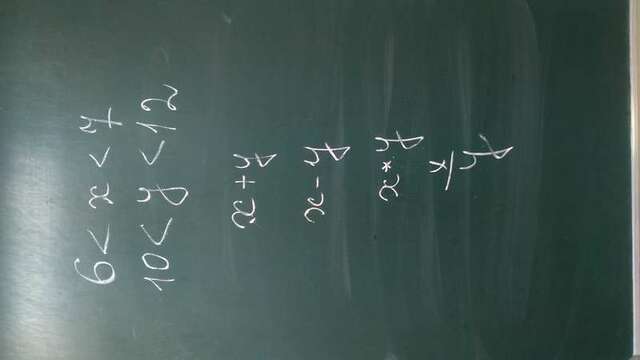 6 < x < 7
10 < y < 12
x + y
x - y
x * y
x
y